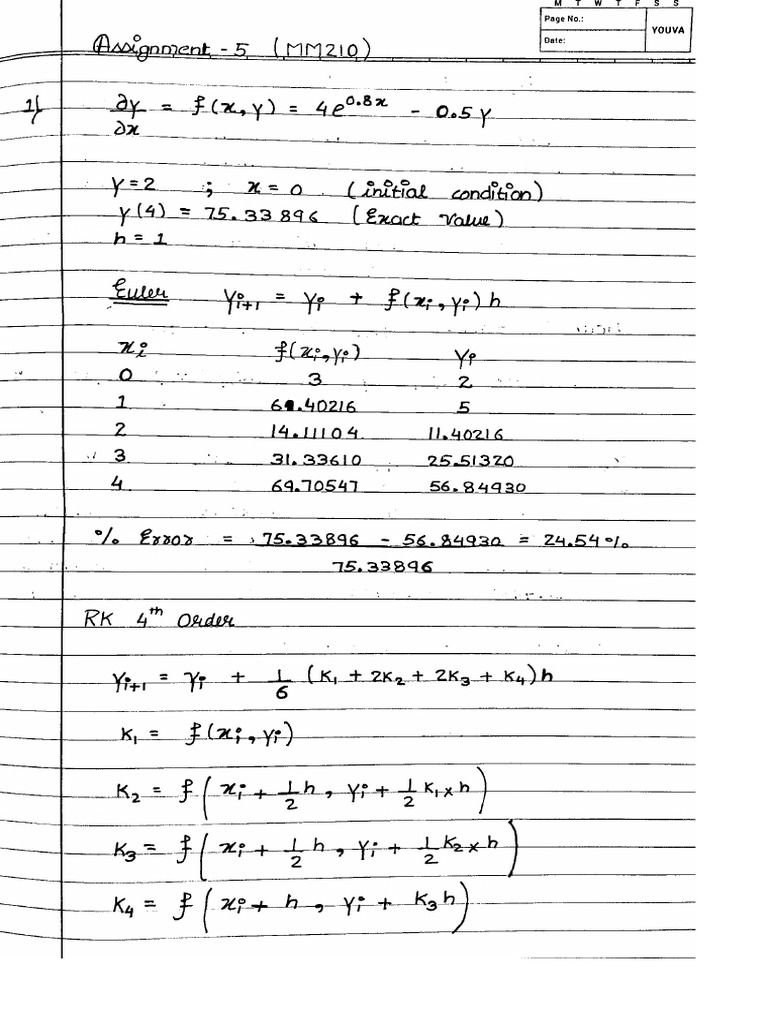 M T W T F S S
Page No.:
Date:
YOUVA
Assignment - 5 (MM210)
1) ∂y/∂x = f(x, y) = 4e^0.8x - 0.5y
y = 2 ; x = 0 (initial condition)
y(4) = 75.33896 (Exact value)
h = 1
Euler yᵢ₊₁ = yᵢ + f(xᵢ, yᵢ)h
xᵢ f(xᵢ, yᵢ) yᵢ
0 3 2
1 6.40216 5
2 14.11104 11.40216
3 31.33610 25.51320
4 69.70547 56.84930
% Error = 75.33896 - 56.84930 = 24.54%
75.33896
RK 4th Order
yᵢ₊₁ = yᵢ + 1/6 (K₁ + 2K₂ + 2K₃ + K₄)h
K₁ = f(xᵢ, yᵢ)
K₂ = f(xᵢ + 1/2 h, yᵢ + 1/2 K₁ × h)
K₃ = f(xᵢ + 1/2 h, yᵢ + 1/2 K₂ × h)
K₄ = f(xᵢ + h, yᵢ + K₃h)